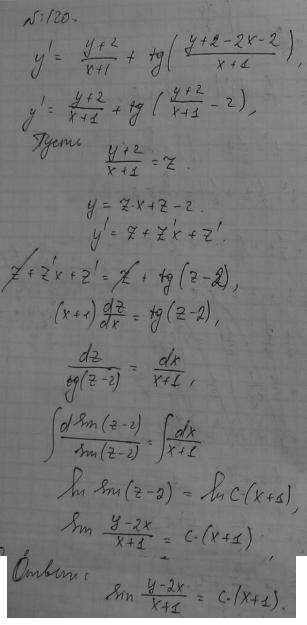 №120.
y' = \frac{y+2}{x+1} + tg(\frac{y+2-2x-2}{x+1}),
y' = \frac{y+2}{x+1} + tg(\frac{y+2}{x+1} - 2),
Пусть
\frac{y+2}{x+1} = z.
y = z·x + z - 2.
y' = z + z'x + z'.
z + z'x + z' = z + tg(z-2),
(x+1)\frac{dz}{dx} = tg(z-2),
\frac{dz}{tg(z-2)} = \frac{dx}{x+1},
∫\frac{d sin(z-2)}{sin(z-2)} = ∫\frac{dx}{x+1}
ln sin(z-2) = ln C·(x+1),
sin \frac{y-2x}{x+1} = C·(x+1),
Ответ:
sin \frac{y-2x}{x+1} = C·(x+1).